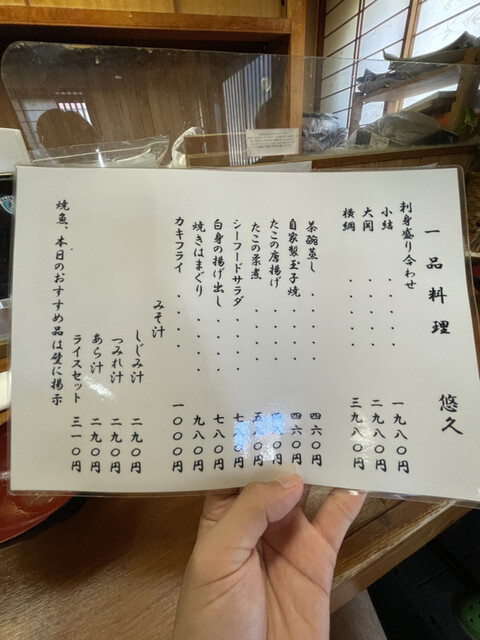 一品料理 悠久
刺身盛り合わせ
小結・・・・一九八〇円
大関・・・・二九八〇円
横綱・・・・三九八〇円
茶碗蒸し・・・・四六〇円
自家製玉子焼・・・・四六〇円
たこの唐揚げ・・・・
たこの柔煮・・・・
シーフードサラダ・・・・七八〇円
白身の揚げ出し・・・・七八〇円
焼きはまぐり・・・・九八〇円
カキフライ・・・・一〇〇〇円
みそ汁
しじみ汁 二九〇円
つみれ汁 二九〇円
あら汁 二九〇円
ライスセット 三一〇円
焼魚、本日のおすすめ品は壁に掲示